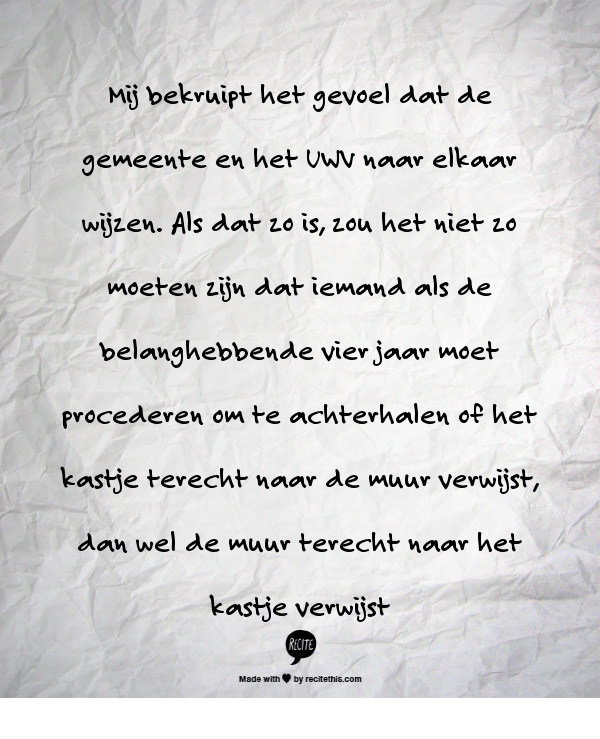 Mij bekruipt het gevoel dat de
gemeente en het UWV naar elkaar
wijzen. Als dat zo is, zou het niet zo
moeten zijn dat iemand als de
belanghebbende vier jaar moet
procederen om te achterhalen of het
kastje terecht naar de muur verwijst,
dan wel de muur terecht naar het
kastje verwijst
RECITE
Made with ♥ by recitethis.com